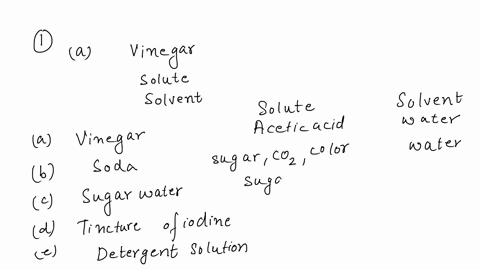 ①
(a) Vinegar
Solute
Solvent
Solute Solvent
(a) Vinegar Acetic acid water
(b) Soda sugar, CO₂, color water
(c) Sugar water suga
(d) Tincture of iodine
(e) Detergent Solution